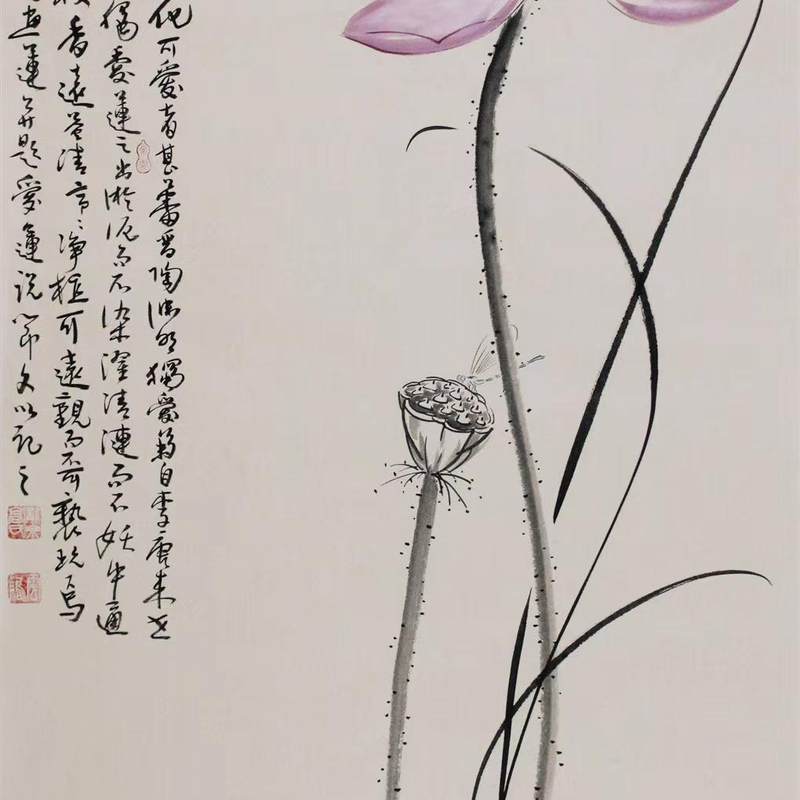 花可愛者甚蕃晉陶淵明獨愛菊自李唐來世
獨愛蓮之出淤泥而不染濯清漣而不妖中通
枝香遠益清亭〻淨植可遠觀而不可褻玩焉
畫蓮并題愛蓮說節文以記之